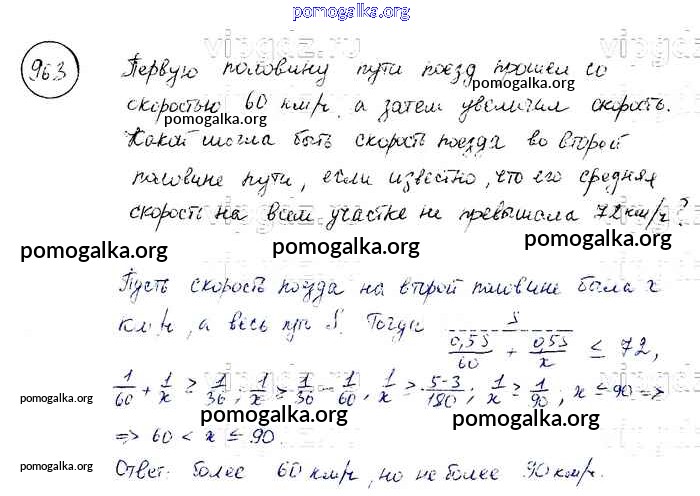 pomogalka.org
vipgdz.ru
963
Первую половину пути поезд прошел со
pomogalka.org
скоростью 60 км/ч, а затем увеличил скорость.
pomogalka.org
Какой могла быть скорость поезда во второй
половине пути, если известно, что его средняя
скорость на всем участке не превышала 72 км/ч?
pomogalka.org pomogalka.org pomogalka.org
Пусть скорость поезда на второй половине была x
км/ч, а весь путь S. Тогда S / (0,5S/60 + 0,5S/x) ≤ 72,
1/60 + 1/x ≥ 1/36; 1/x ≥ 1/36 - 1/60, 1/x ≥ 5-3/180; 1/x ≥ 1/90; x ≤ 90 =>
pomogalka.org pomogalka.org pomogalka.org
=> 60 < x ≤ 90.
pomogalka.org
Ответ: более 60 км/ч, но не более 90 км/ч.